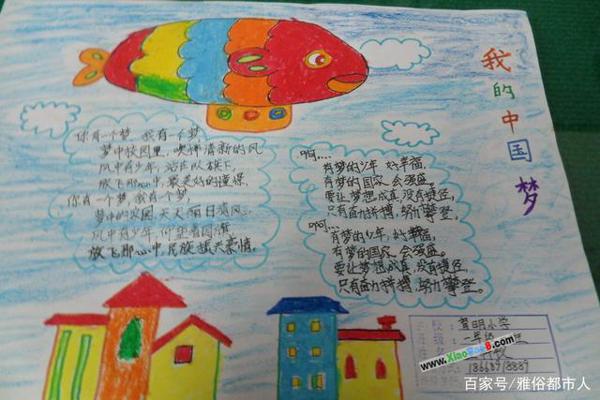 我的中国梦
你有一个梦,我有一个梦,
梦中校园里,吹拂清新的风
风中有少年,站在队旗下,
放飞那心中,最美好的憧憬。
你有一个梦,我有个梦,
梦中的家园,天天丽日清风。
风中有少年,仰望着国旗
放飞那心中,民族振兴豪情。
啊....
有梦的少年,好幸福,
有梦的国家,会强盛。
要让梦想成真,没有捷径,
只有奋力拼搏,努力攀登。
啊....
有梦的少年,好幸福,
有梦的国家,会强盛。
要让梦想成真,没有捷径,
只有奋力拼搏,努力攀登。
明小学
百家号/雅俗都市人